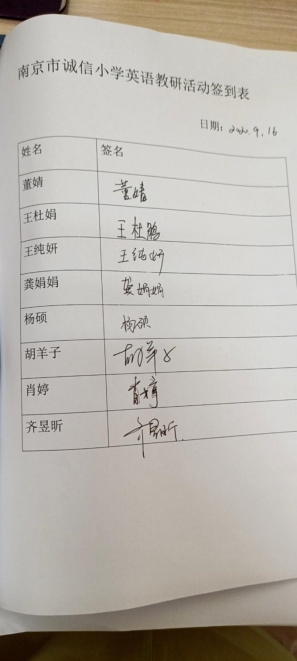 南京市诚信小学英语教研活动签到表
日期：2020.9.16
姓名 签名
董婧 董婧
王杜娟 王杜鹃
王纯妍 王纯妍
龚娟娟 龚娟娟
杨硕 杨硕
胡羊子 胡羊子
肖婷 肖婷
齐昱昕 齐昱昕